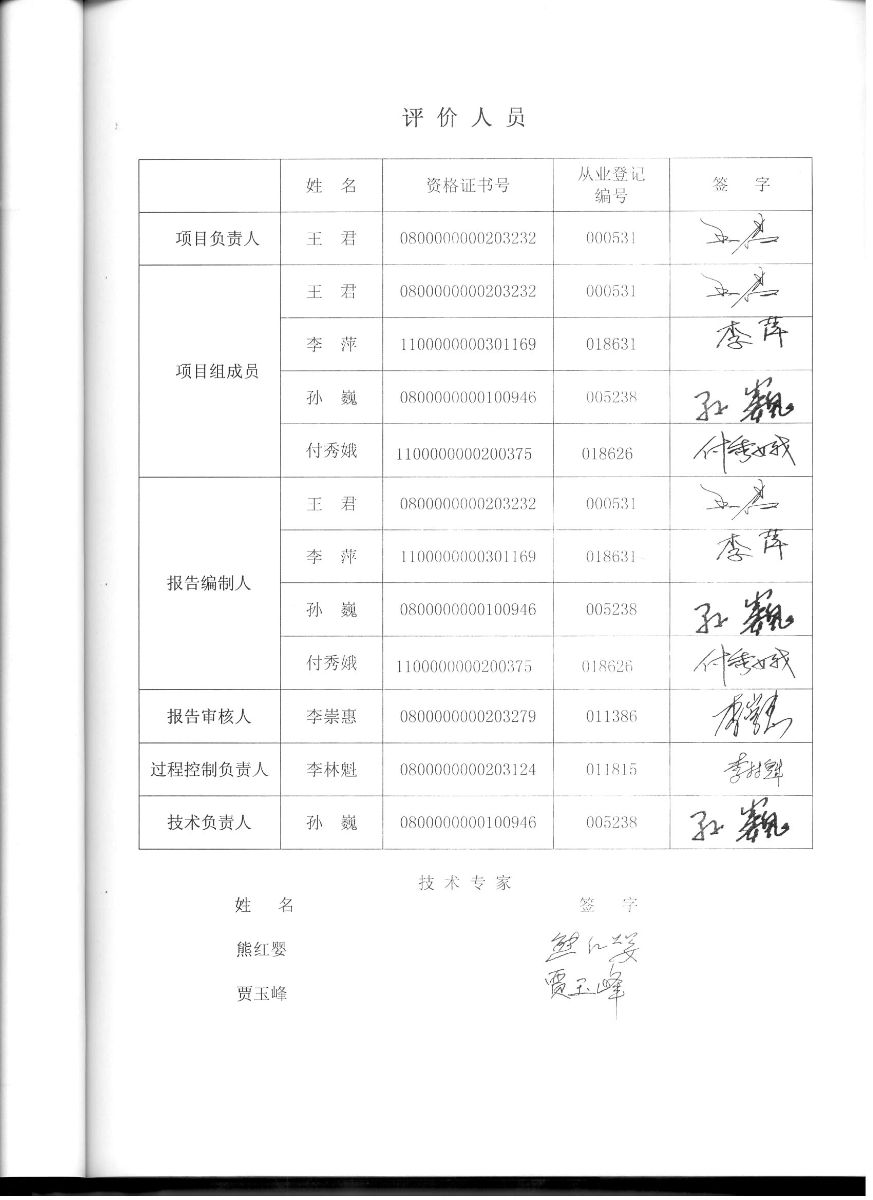 评 价 人 员
姓 名 资格证书号 从业登记编号 签 字
项目负责人 王 君 0800000000203232 000531 王君
项目组成员 王 君 0800000000203232 000531 王君
李 萍 1100000000301169 018631 李萍
孙 巍 0800000000100946 005238 孙巍
付秀娥 1100000000200375 018626 付秀娥
报告编制人 王 君 0800000000203232 000531 王君
李 萍 1100000000301169 018631 李萍
孙 巍 0800000000100946 005238 孙巍
付秀娥 1100000000200375 018626 付秀娥
报告审核人 李崇惠 0800000000203279 011386 李崇惠
过程控制负责人 李林魁 0800000000203124 011815 李林魁
技术负责人 孙 巍 0800000000100946 005238 孙巍
技 术 专 家
姓 名 签 字
熊红婴 熊红婴
贾玉峰 贾玉峰